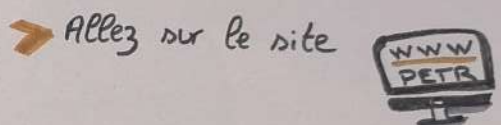 Allez sur le site
WWW
PETR